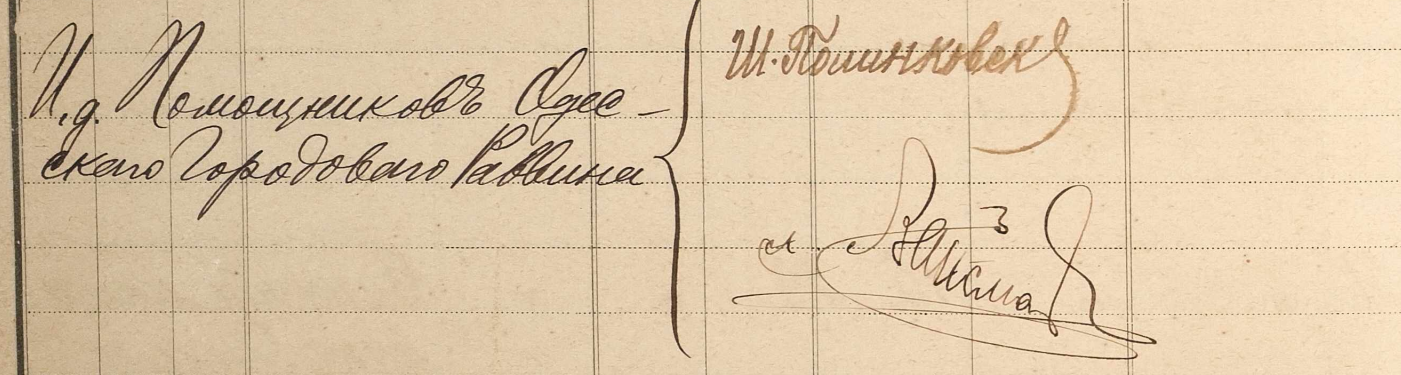 И.д. Помощниковъ Одес-
скаго Городоваго Раввина
Ш. Полинковск